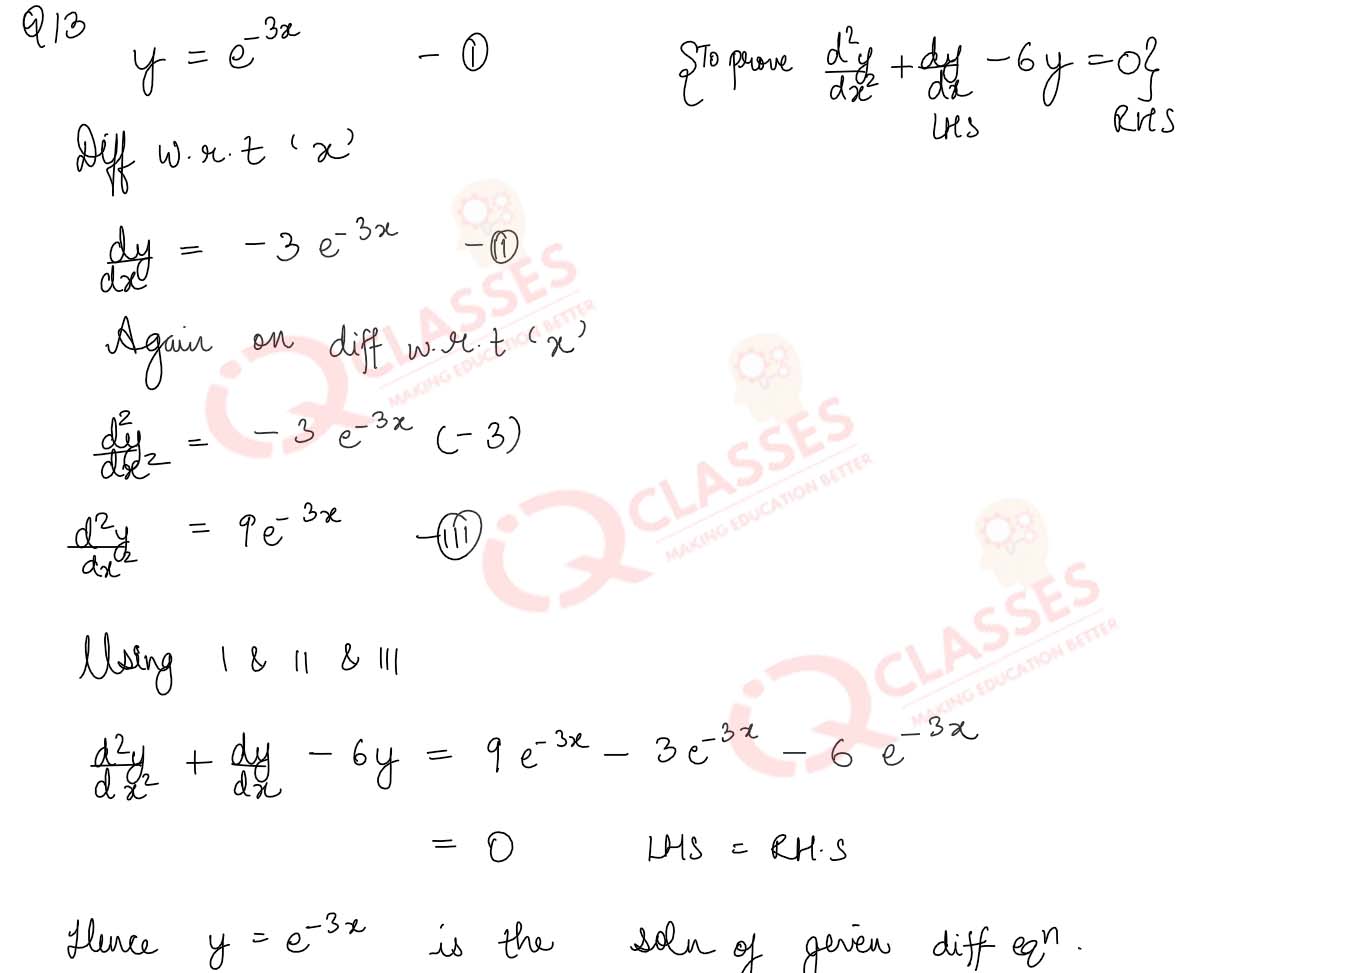 Q13
y = e^{-3x} - ①
{To prove d²y/dx² + dy/dx - 6y = 0}
LHS RHS
Diff w.r.t 'x'
dy/dx = -3 e^{-3x} - ⑪
Again on diff w.r.t 'x'
d²y/dx² = -3 e^{-3x} (-3)
d²y/dx² = 9e^{-3x} - (III)
Using I & II & III
d²y/dx² + dy/dx - 6y = 9e^{-3x} - 3e^{-3x} - 6 e^{-3x}
= 0 LHS = RH.S
Hence y = e^{-3x} is the soln of geven diff eqⁿ.
iQ CLASSES
MAKING EDUCATION BETTER
iQ CLASSES
MAKING EDUCATION BETTER
iQ CLASSES
MAKING EDUCATION BETTER